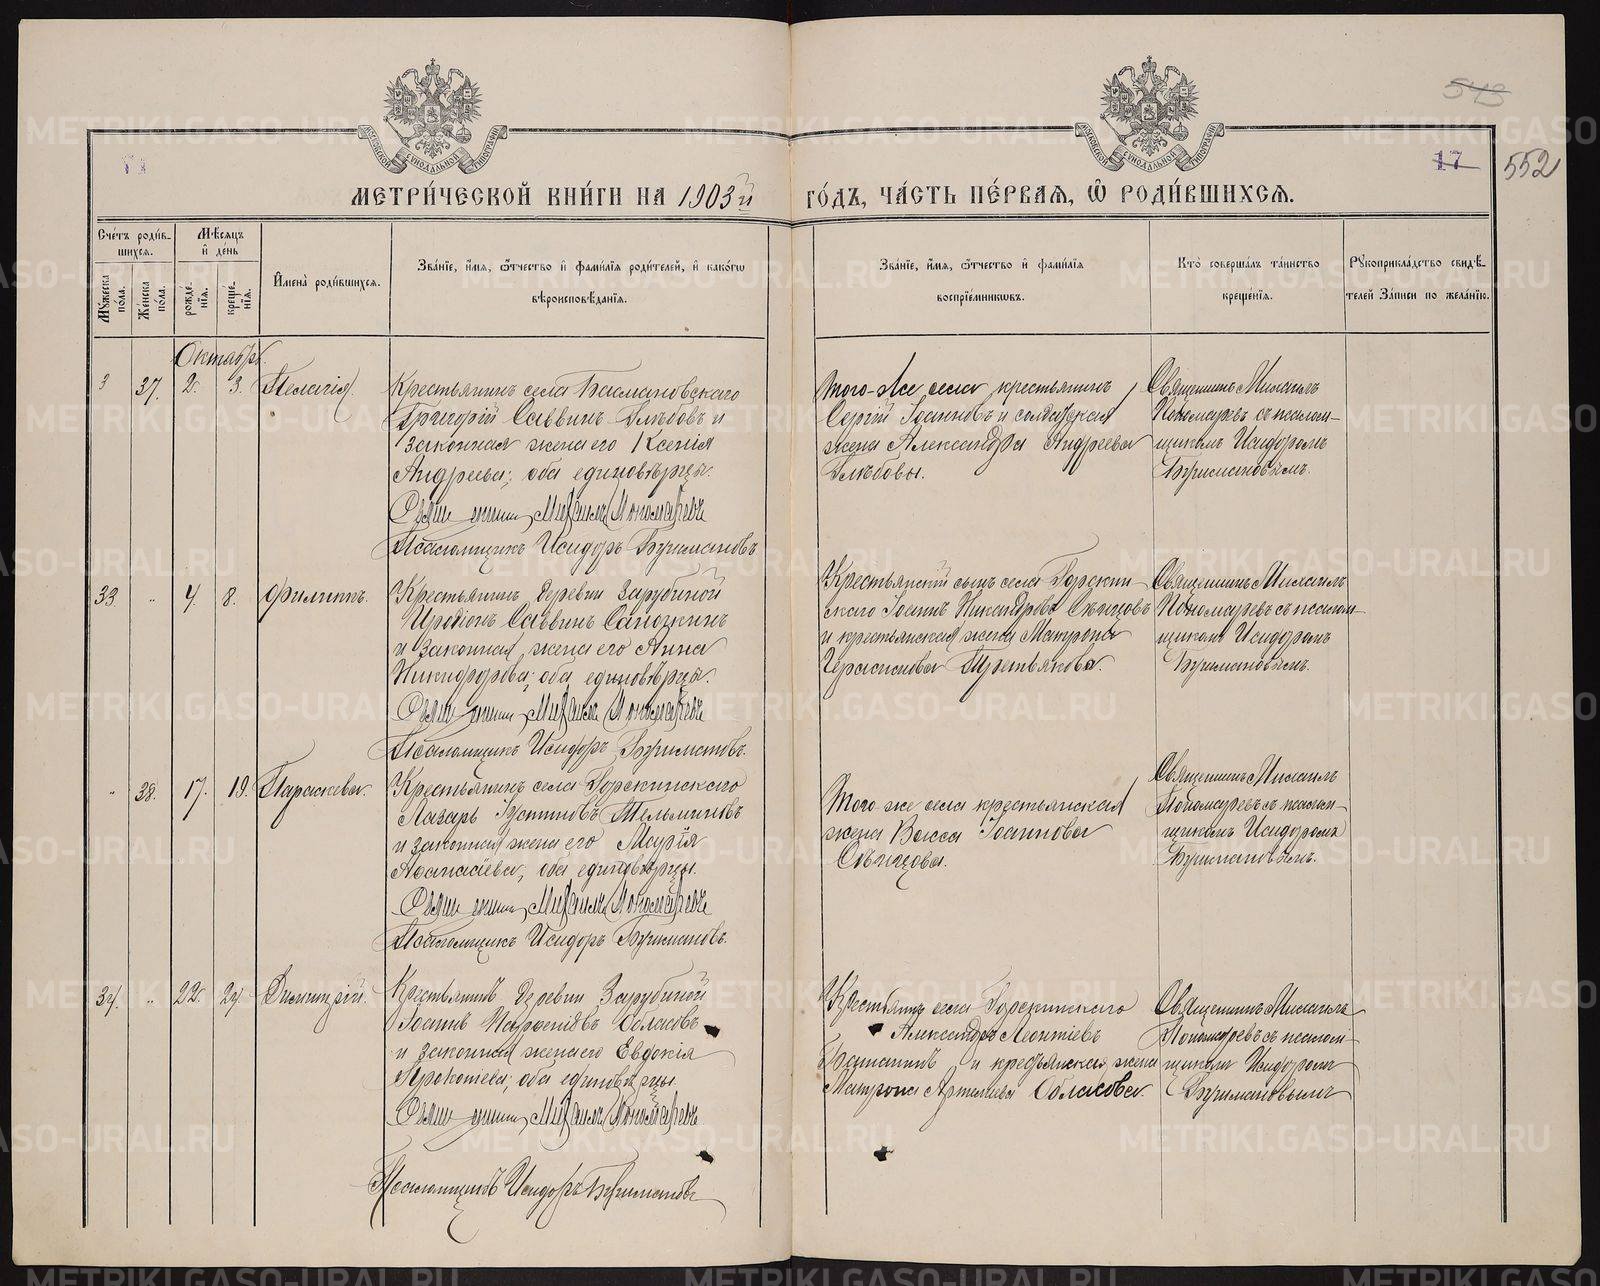 543
17
552
МОСКОВСКОЙ СѴНОДАЛЬНОЙ ТИПОГРАФІИ
МОСКОВСКОЙ СѴНОДАЛЬНОЙ ТИПОГРАФІИ
МЕТРИ́ЧЕСКОЙ КНИ́ГИ НА 1903й ГО́ДЪ, ЧА́СТЬ ПЕ́РВАЯ, Ѽ РОДИ́ВШИХСЯ.
Сче́тъ роди́в-
шихся.
Мѣ́сяцъ
и҆ де́нь
Мꙋ́жеска
по́ла.
Же́нска
по́ла.
рожде́-
нїѧ.
креще́-
нїѧ.
И҆мена̀ роди́вшихся.
Зва́нїе, и҆́мя, ѻ҆́тчество и҆ фами́лїя роди́телей, и҆ како́гѡ
вѣроисповѣ́данїя.
Зва́нїе, и҆́мя, ѻ҆́тчество и҆ фами́лїя
воспрїе́мникѡвъ.
Кто̀ соверша́лъ та́инство
креще́нїя.
Рꙋкоприкла́дство свидѣ́-
телей За́писи по жела́нїю.
Октябрь
3
37.
2.
3.
Пелагія.
Крестьянинъ села Басмановскаго
Григорій Саввинъ Глѣбовъ и
законная жена его Ксенія
Андреева; оба единовѣрцы.
Священникъ Михаилъ Пономаревъ
Псаломщикъ Исидоръ Бурмановъ
Того-же села крестьянинъ
Сергій Іоанновъ и солдатская
жена Александра Андреева
Глѣбовы.
Священникъ Михаилъ
Пономаревъ съ псалом-
щикомъ Исидоромъ
Бурмановымъ.
33.
"
4.
8.
Филиппъ.
Крестьянинъ деревни Зарубиной
Иродіонъ Саввинъ Сапожкинъ
и законная жена его Анна
Никифорова; оба единовѣрцы.
Священникъ Михаилъ Пономаревъ
Псаломщикъ Исидоръ Бурмановъ.
Крестьянскій сынъ села Горскин-
скаго Іоаннъ Никандровъ Свинцовъ
и крестьянская жена Матрона
Герасимова Третьякова.
Священникъ Михаилъ
Пономаревъ съ псалом-
щикомъ Исидоромъ
Бурмановымъ.
"
38.
17.
19.
Параскева.
Крестьянинъ села Горскинскаго
Лазарь Іустиновъ Тельминовъ
и законная жена его Марія
Аѳанасіева; оба единовѣрцы.
Священникъ Михаилъ Пономаревъ
Псаломщикъ Исидоръ Бурмановъ.
Того же села крестьянская
жена Васса Іоаннова
Свинцова.
Священникъ Михаилъ
Пономаревъ съ псалом-
щикомъ Исидоромъ
Бурмановымъ.
34.
"
22.
24.
Димитрій.
Крестьянинъ деревни Зарубиной
Іоаннъ Парѳеніевъ Обласовъ
и законная жена его Евдокія
Прокопіева; оба единовѣрцы.
Священникъ Михаилъ Пономаревъ
Псаломщикъ Исидоръ Бурмановъ
Крестьянинъ села Горскинскаго
Александръ Леонтіевъ
и крестьянская жена
Матрона Артемиева Обласова.
Священникъ Михаилъ
Пономаревъ съ псалом-
щикомъ Исидоромъ
Бурмановымъ
METRIKI.GASO-URAL.RU